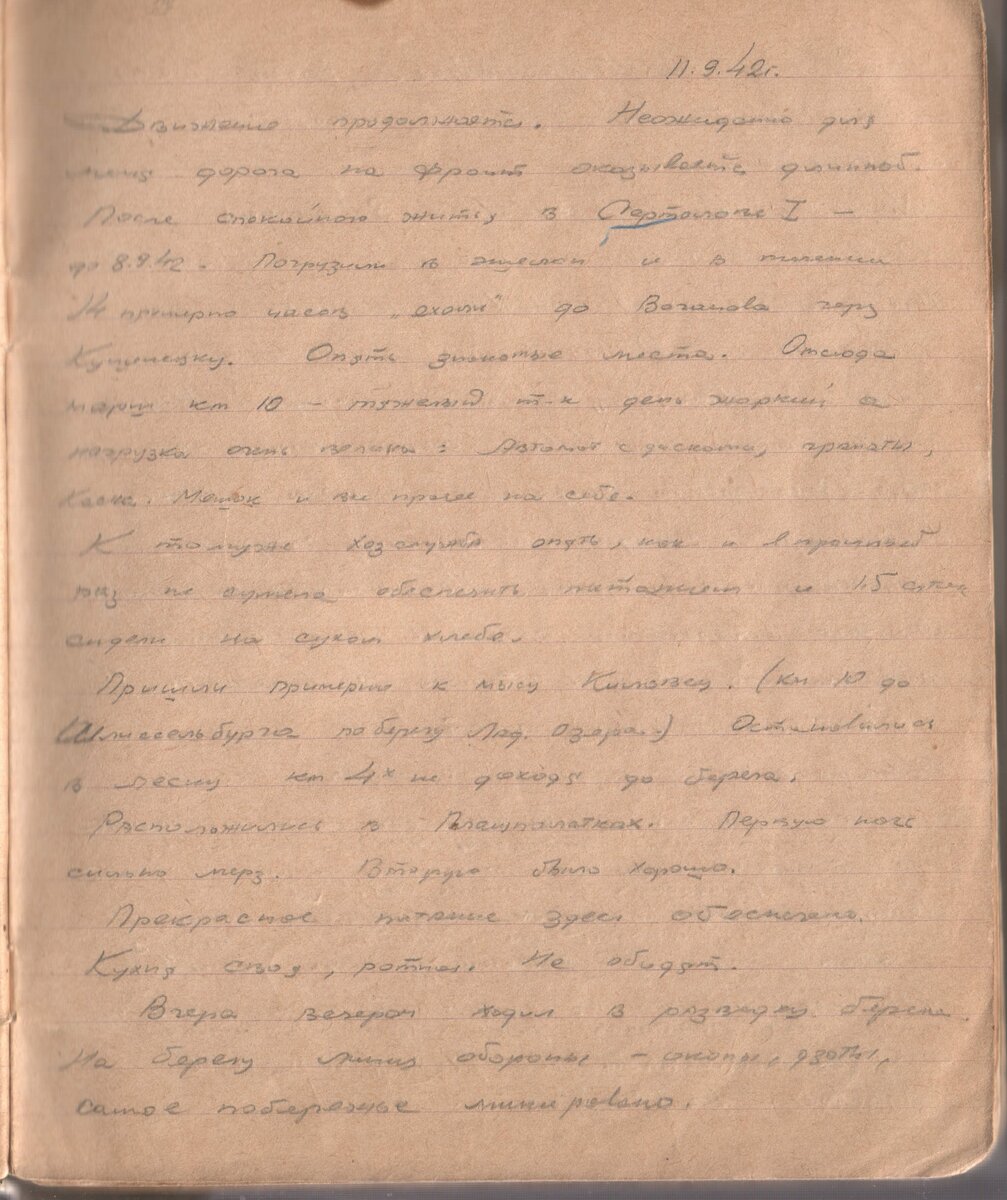 11.9.42г.
Движение продолжается. Неожиданно для
меня дорога на фронт оказывается длинной.
После спокойного житья в Сертолове I –
до 8.9.42. Погрузили в эшелон и в течении
14 примерно часов „ехали" до Ваганова через
Кушелевку. Опять знакомые места. Отсюда
марш км 10 – тяжелый т-к день жаркий, а
нагрузка очень велика: Автомат с дисками, гранаты,
Каска. Мешок и все прочее на себе.
К тому же хозслужба опять, как и в прошлый
раз не сумела обеспечить питанием и 1.5 суток
сидели на сухом хлебе.
Пришли примерно к мысу (км 10 до
Шлиссельбурга по берегу Лад. Озера.) Остановились
в лесу км 4х не доходя до берега.
Расположились в Плащпалатках. Первую ночь
сильно мерз. Вторую было хорошо.
Прекрасное питание здесь обеспечено.
Кухня своя, ротная. Не обидят.
Вчера вечером ходил в разведку берега.
На берегу линия обороны – окопы, дзоты,
самое побережье минировано.